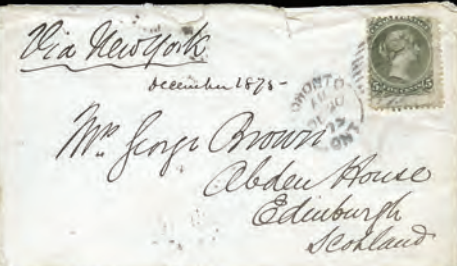 Via New York
December 1875-
TORONTO
ONT
5 5
Mrs George Brown
Abden House
Edinburgh
Scotland